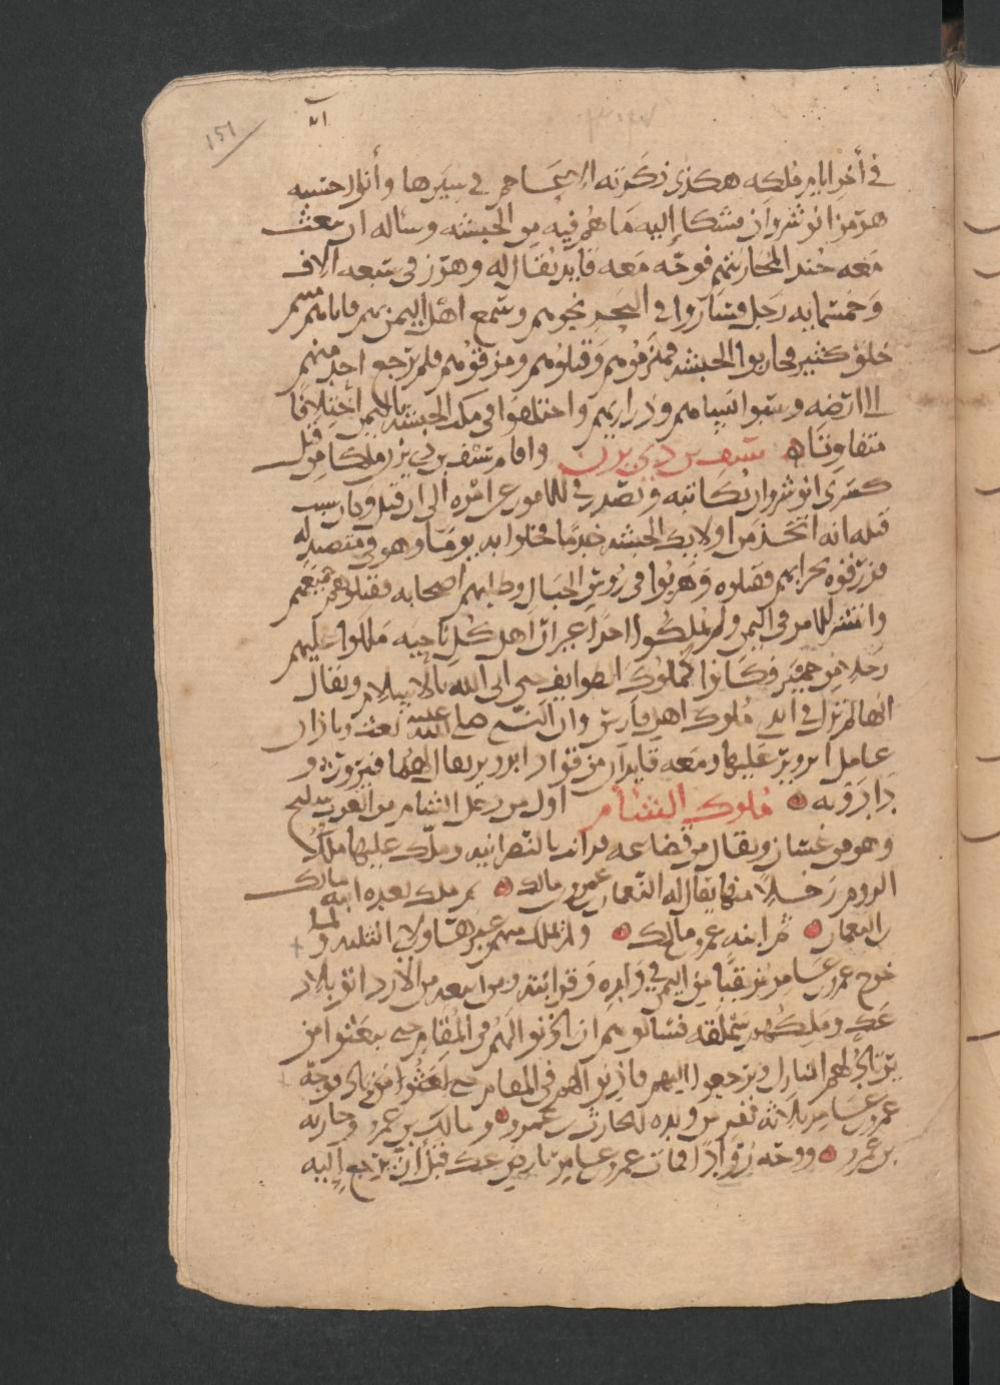 151
في أخر ايام ملكه هكذى ذكرته الاعاجم في سيرها وأنوا حبسه
هرمز انو شروان فشكا إليه ما هم فيه من الحبشه وساله ان يبعث
معه جندا لمحاربتهم فوجه معه قايد يقال له وهرز في سبعه الاف
وخمسمايه رجل فساروا في البحر نحوهم وسمع اهل اليمن بهم فاتاهم منهم
خلق كثير فحاربوا الحبشه فهزموهم وقتلوهم ومزقوهم فلم يرجع احد منهم
الى ارضه وسبوا نسياهم وذراريهم واختلفوا في مكث الحبشه باليمن اختلافا
متفاوتا سيف بن ذي يزن واقام سيف بن ذي يزن ملكا من قبل
كسرى انو شروان يكاتبه ويصدر في الامور عن امره الى ان قتل وكان سبب
قتله انه اتخذ من اوليك الحبشه خدما فخلوا به يوما وهو في متصيد له
فزرقوه بحرابهم فقتلوه وهربوا في رؤوس الجبال وطلبهم اصحابه فقتلوهم جميعهم
وانتشر الامر في اليمن ولم يملكوا احدا غير ان اهل كل ناحيه ملكوا عليهم
رجلا من حمير فكانوا كملوك الطوايف حتى اتى الله بالاسلام ويقال
انها لم تزل في ايدي ملوك اهل فارس وان النبي صلى الله عليه بعث وباذان
عامل ابرويز عليها ومعه قايدان من قواد ابرويز يقال لهما فيروز و
داذويه ملوك الشام اول من دخل الشام من العرب سليح
وهو من غسان ويقال من قضاعه فدانت بالنصرانيه وملك عليها ملك
الروم رجلا منها يقال له النعمان بن عمرو بن مالك ثم ملك بعده ابنه مالك
بن النعمان ثم ابنه عمرو بن مالك ولم يملك منهم غير هاولاي الثلثه ولما
خرج عمرو بن عامر مزيقيا من اليمن في ولده وقرابته ومن تبعه من الازد اتو بلاد
عك وملكهم سملقه فسالوهم ان ياذنوا لهم في المقام حتى يبعثوا من
يرتاد لهم المنازل ويرجعوا اليهم فاذنوا لهم في المقام حتى يبعثوا من يرتاد فوجه
عمرو بن عامر ثلاثه نفر من ولده الحارث بن عمرو ومالك بن عمرو وحارثه
بن عمرو ووجه روادا فمات عمرو بن عامر بارض عك قبل ان ترجع إليه